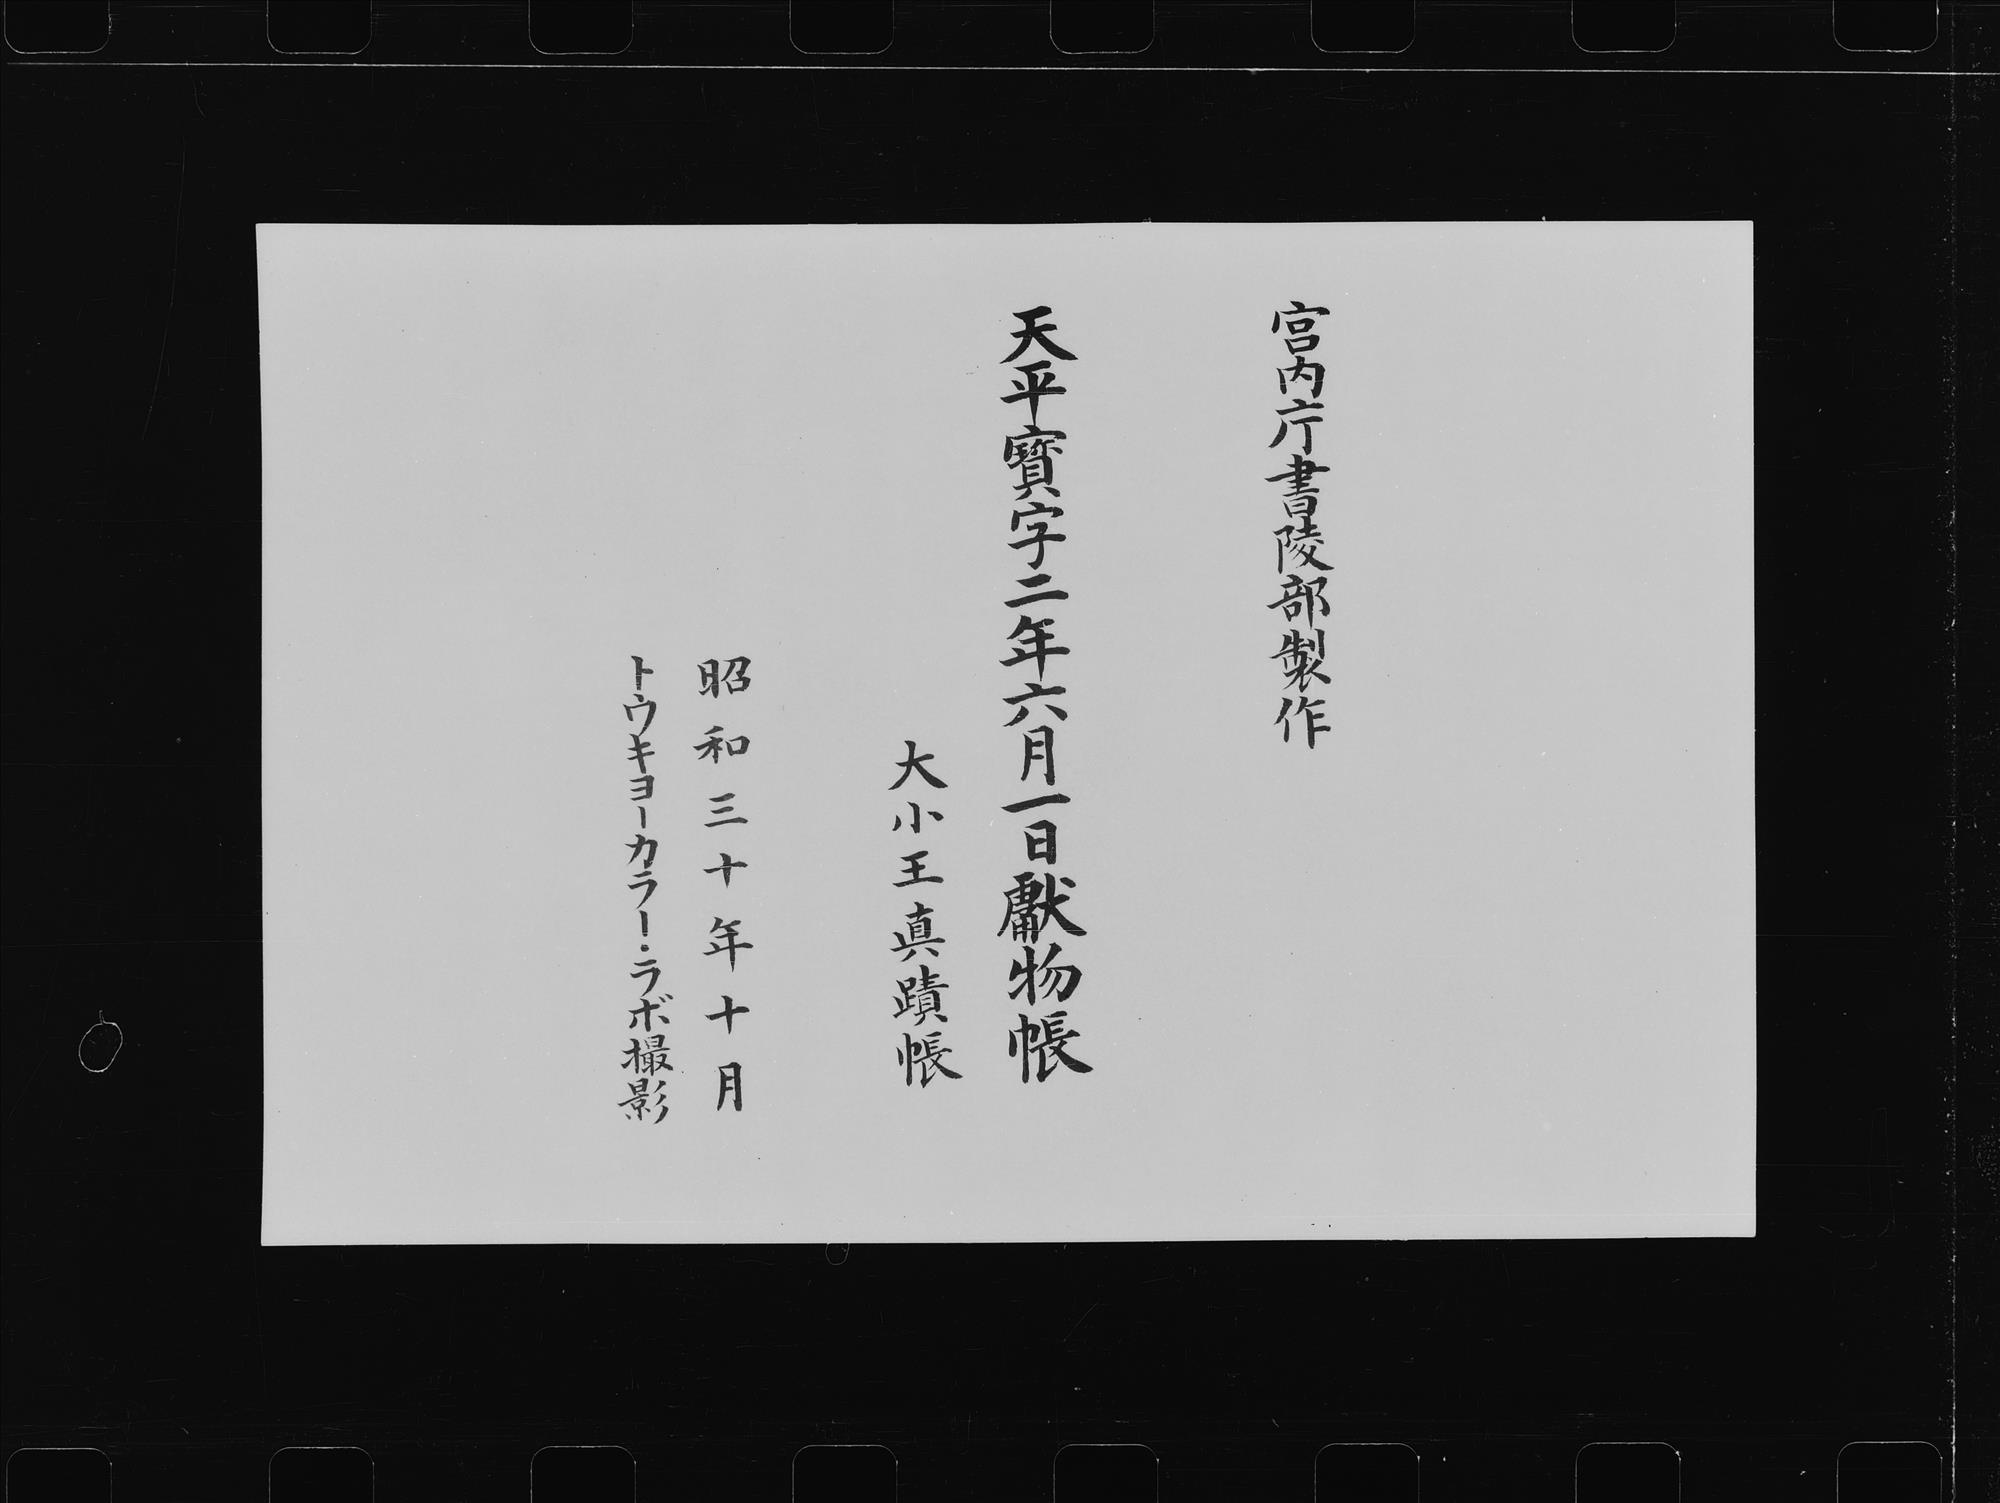 宮内庁書陵部製作
天平寳字二年六月一日獻物帳
大小王真蹟帳
昭和三十年十月
トウキョーカラー・ラボ撮影